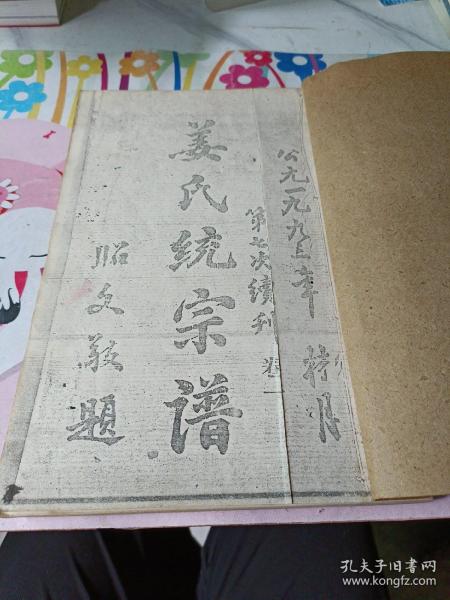 公元一九九五年 桂月
第七次續刊 卷一
姜氏统宗譜
昭文敬題
孔夫子旧书网
www.kongfz.com